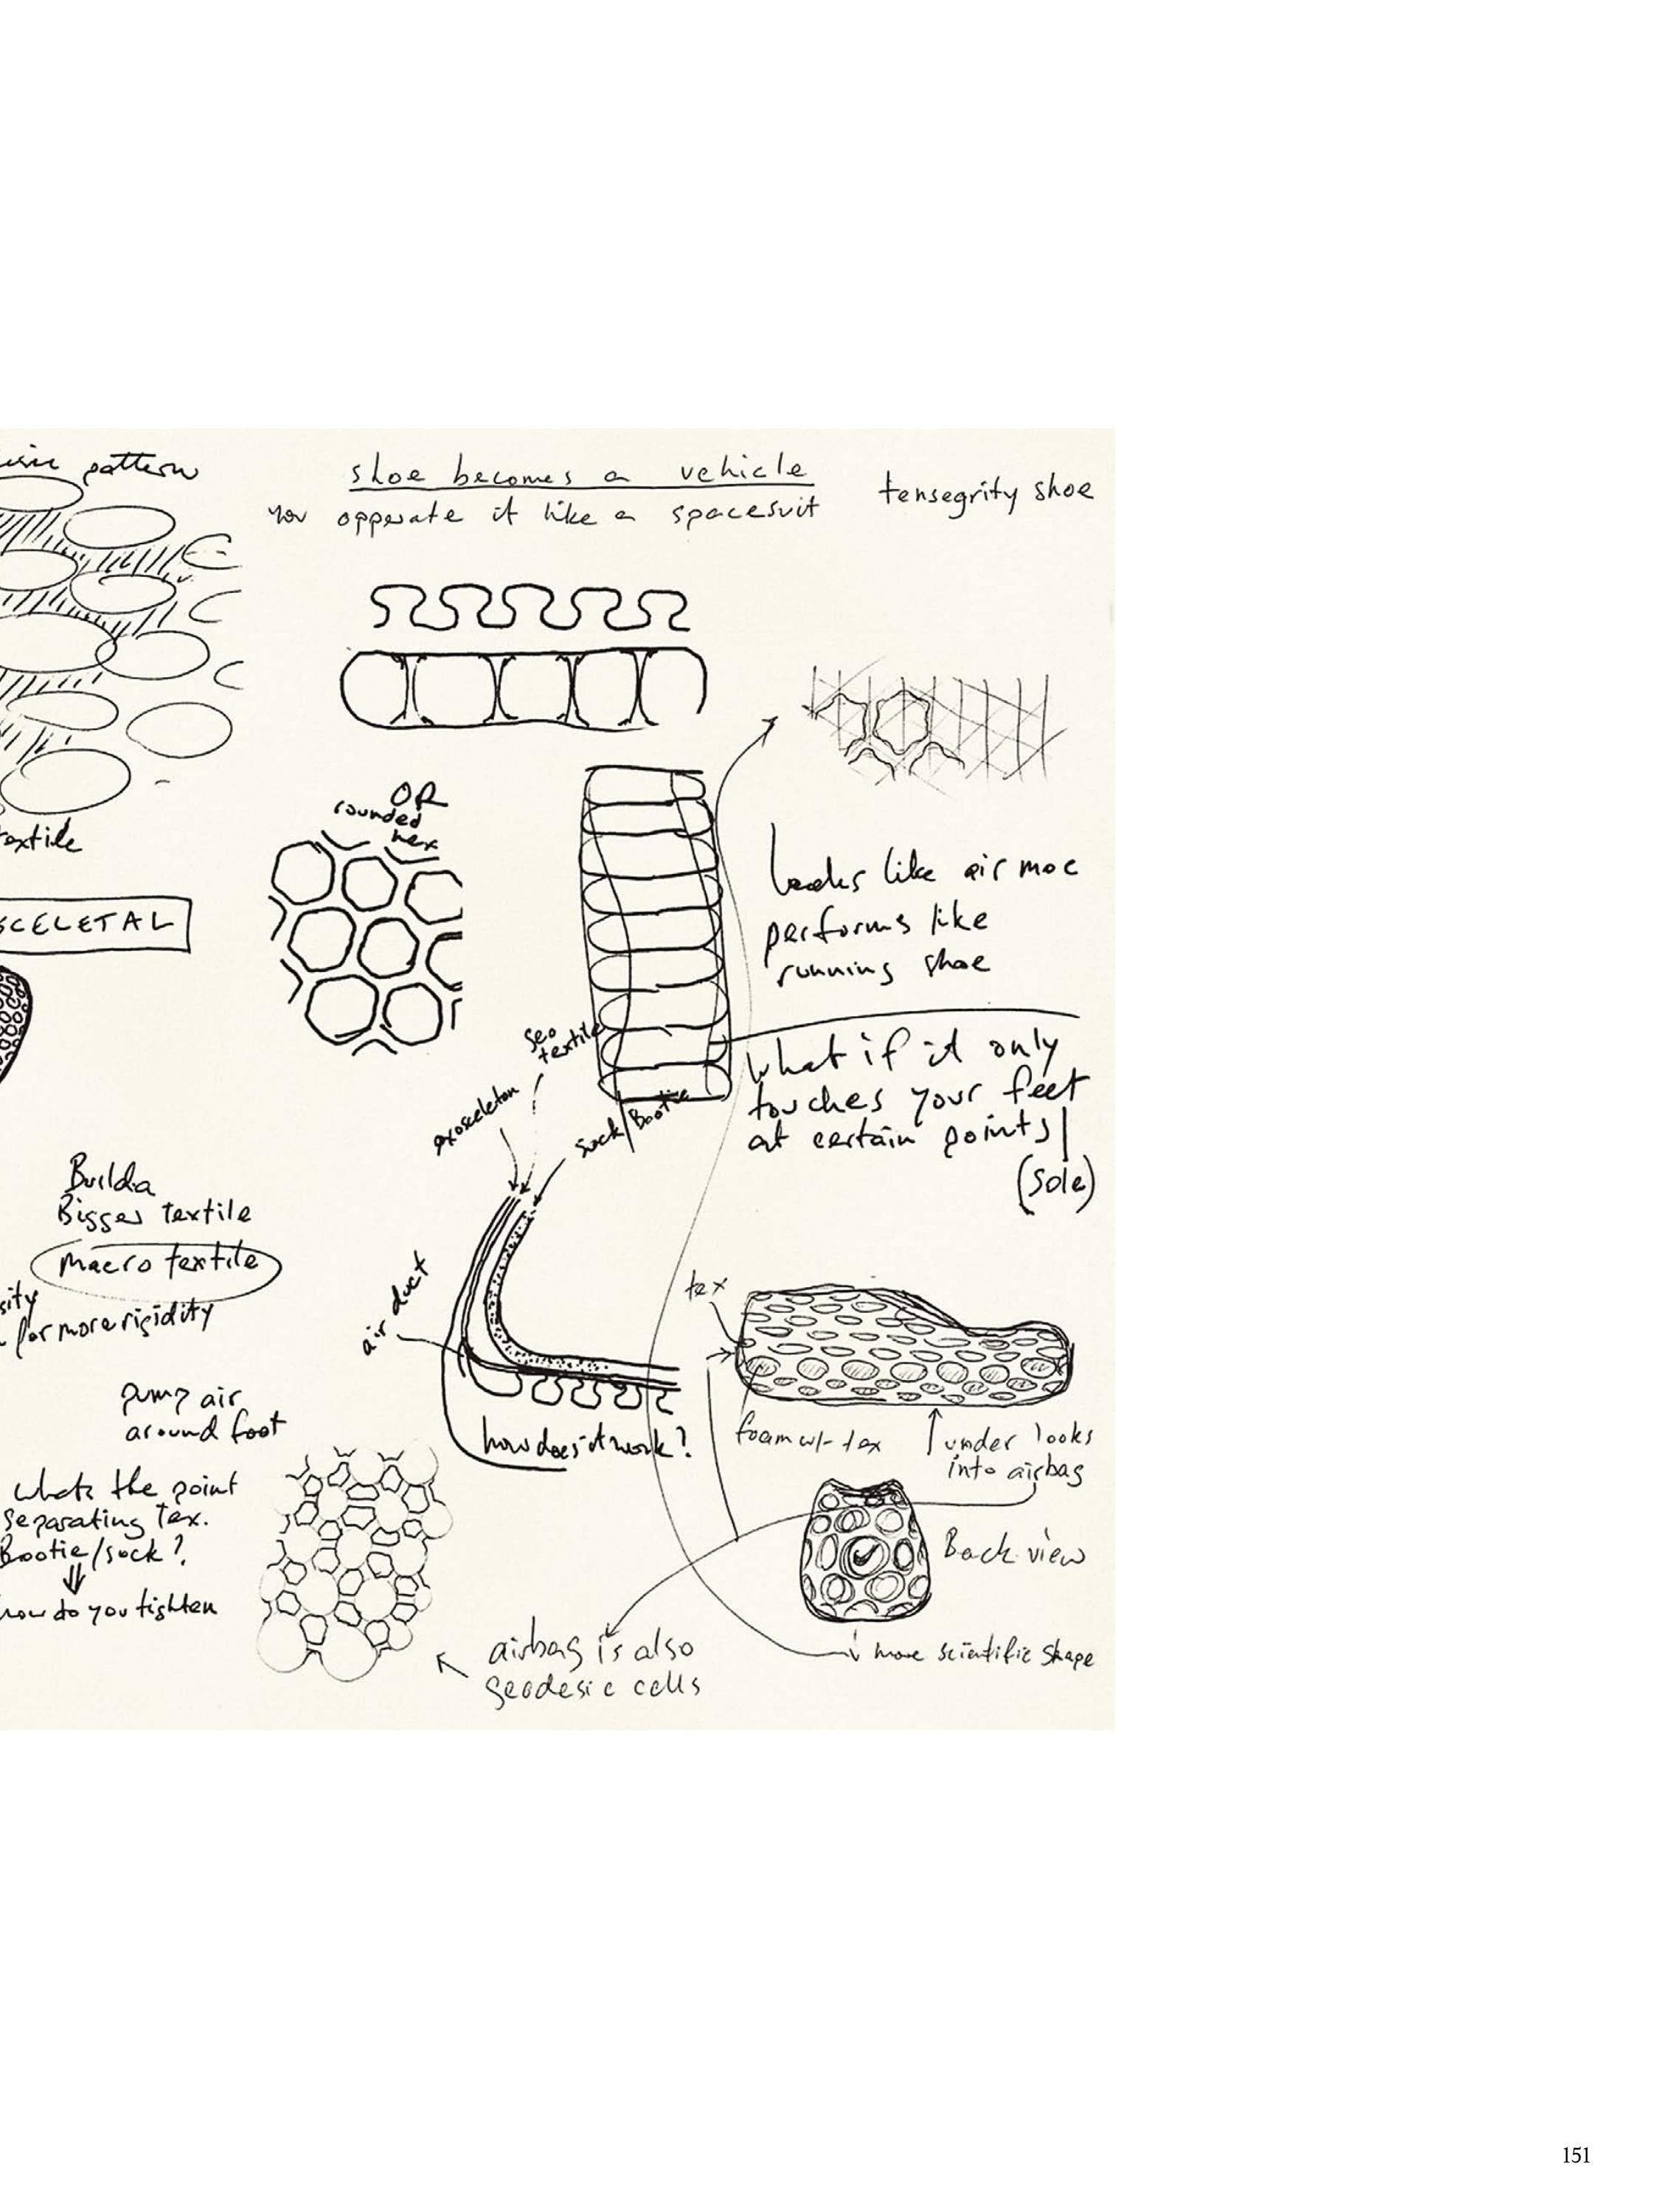 pattern
shoe becomes a vehicle
you opperate it like a spacesuit
tensegrity shoe
textile
OR
rounded
hex
SCELETAL
looks like air moc
performs like
running shoe
what if it only
touches your feet
at certain points
(sole)
geo
textile
exoskeleton
sock/Bootie
air duct
how does it work?
Build a
Bigger textile
macro textile
sity
for more rigidity
pump air
around foot
whats the point
separating tex.
Bootie/sock?
how do you tighten
tex
foam w/- tex
under looks
into airbag
Back view
more scientific shape
airbag is also
geodesic cells
151